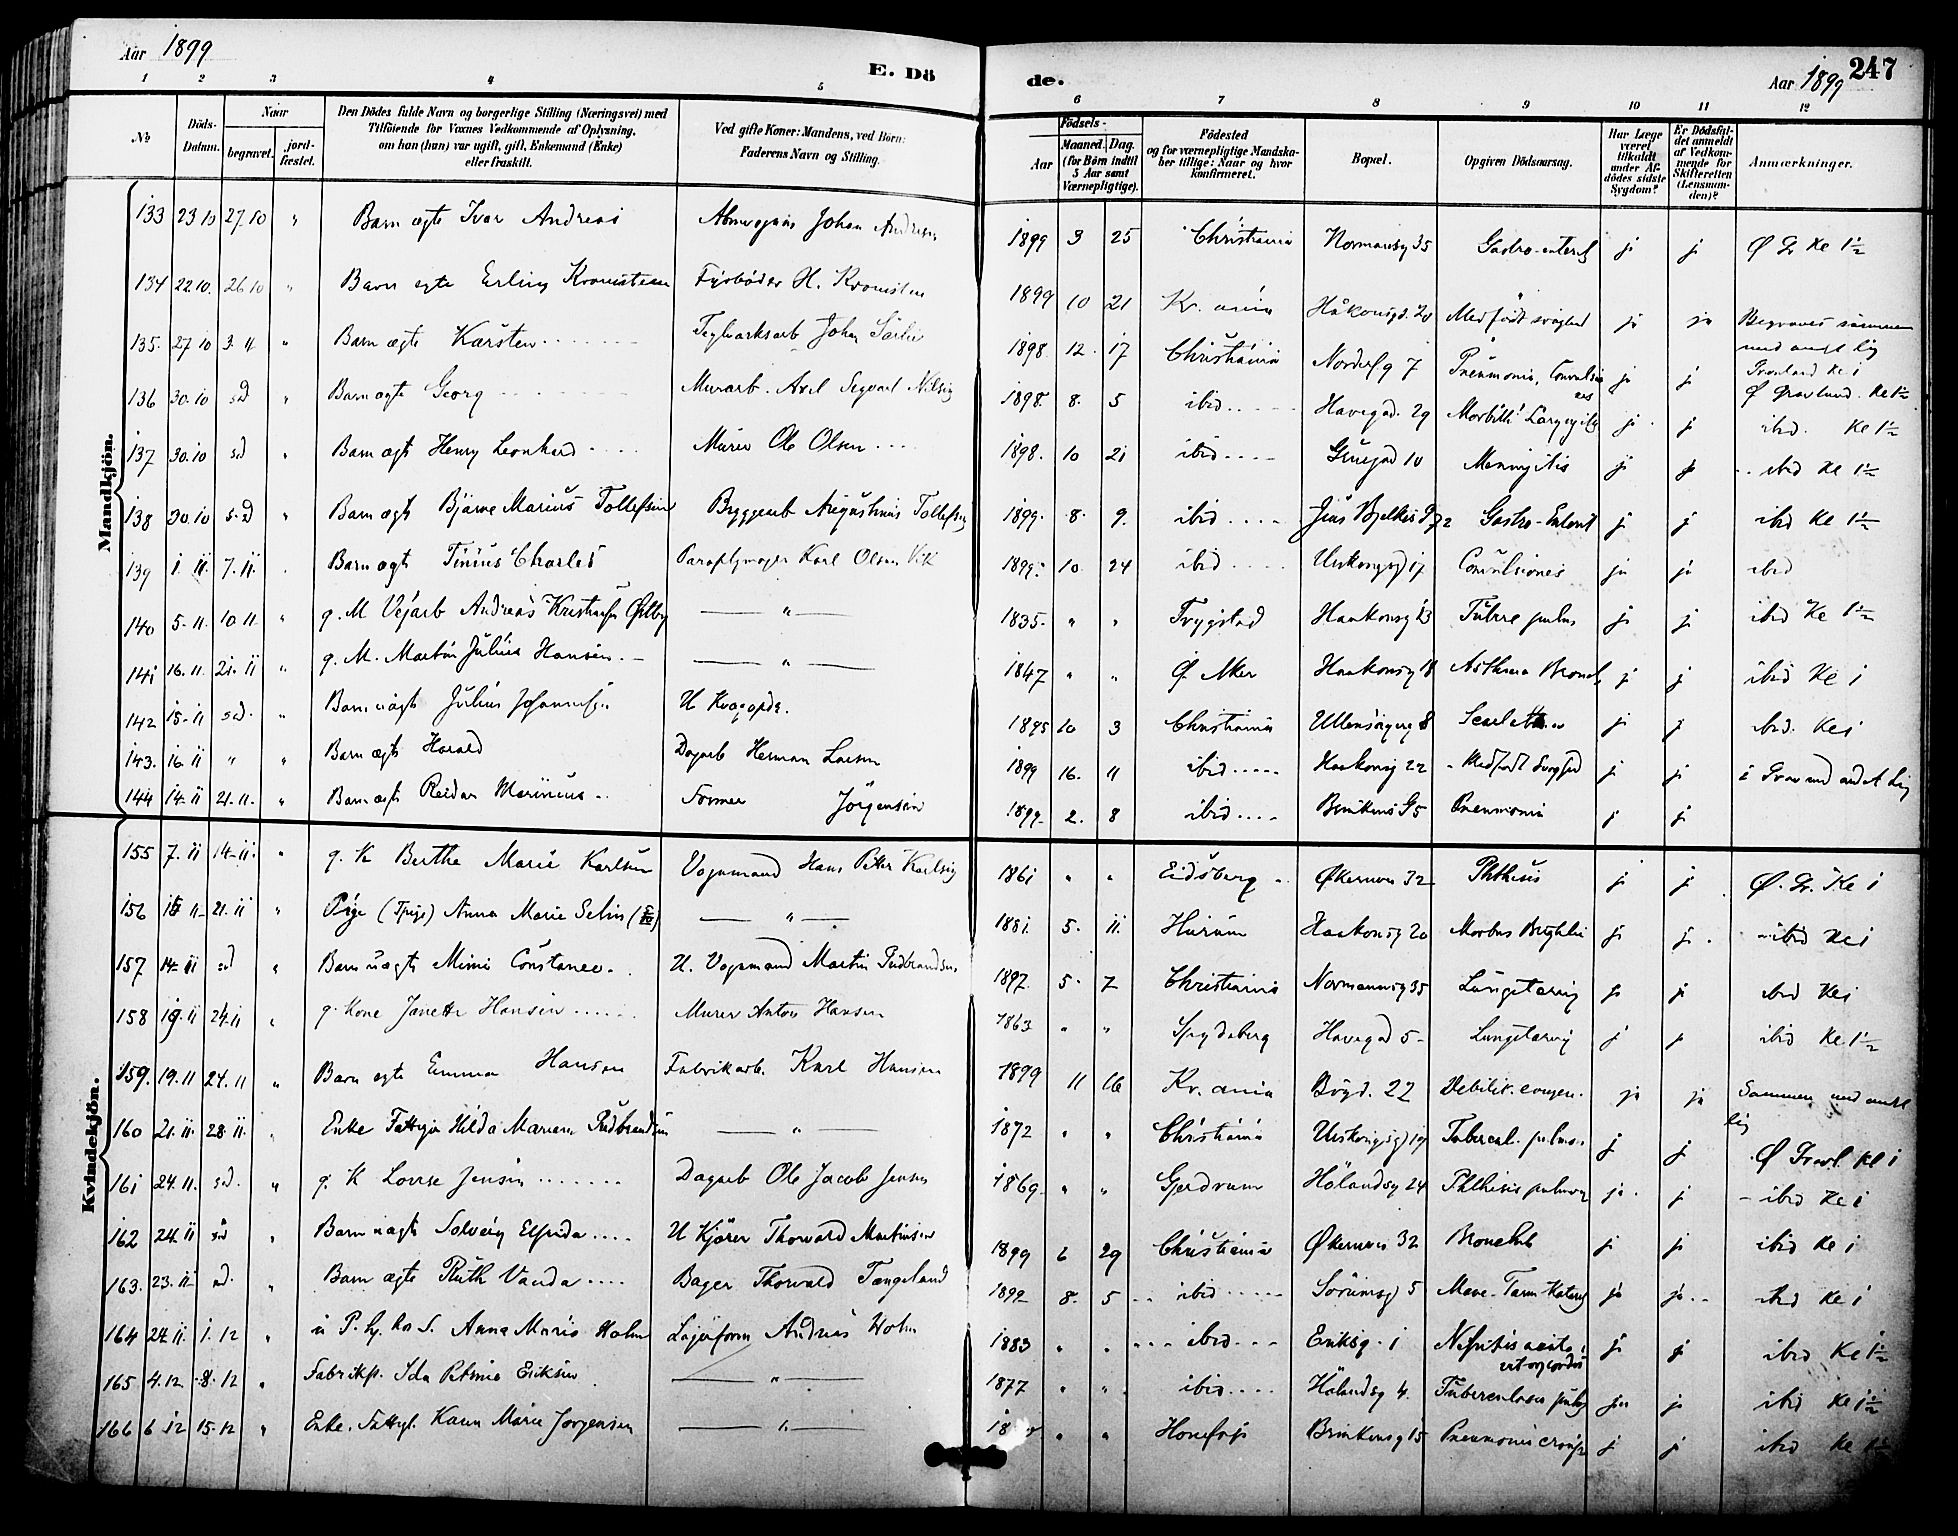 Aar 1899
E. Dö
de.
Aar 1899
247
1 2 3 4 5 6 7 8 9 10 11 12
No
Döds-Datum.
Naar
begravet.
jord-fæstet.
Den Dödes fulde Navn og borgerlige Stilling (Næringsvei) med Tilföiende for Voxnes Vedkommende af Oplysning, om han (hun) var ugift, gift, Enkemand (Enke) eller fraskilt.
Ved gifte Koner: Mandens, ved Börn: Faderens Navn og Stilling.
Födsels-
Aar
Maaned. Dag.
(for Börn indtil 5 Aar samt Værnepligtige).
Födested og for værnepligtige Mandskaber tillige: Naar og hvor konfirmeret.
Bopæl.
Opgiven Dödsaarsag.
Har Læge været tilkaldt under Afdödes sidste Sygdom?
Er Dödsfaldet anmeldt af Vedkommende for Skifteretten (Lensmanden)?
Anmærkninger.
Mandkjön.
133 23 10 27 10 " Barn ægte Ivar Andreas Johan Andresen 1899 3 25 Christiania Normansg 35 Gastro-enterit j j Ø Gr Ke 1½
134 22.10. 26 10 " Barn egte Erling Kromsteen Fyrbøder H. Kromsteen 1899 10 21 Kr. ania Håkonsgd. 20 Medfödt svaghed ja ja Begraves sammen med andet lig
135. 27 10 3. 11 " Barn ægte Karsten Teglværksarb Johan 1898 12. 17 Christiania Norderhg 7 Pneumonia, Convulsiones j j Grønland Ke 1
136 30.10 sd " Barn ægte Georg Murarb. Axel Segvard Nilsen 1898. 8. 5 ibid Havegad. 29 Morbilli Laryngitis j. j Ø Gravlund. Ke 1½
ibid. Ke 1½
137 30.10 sd " Barn ægt Henry Leonhard Murer Ole Olsen 1898. 10 21 ibid Gruegad 10 Meningitis j j ibid Ke 1½
138 30.10 s.d " Barn ægt Bjarne Marius Tollefsen Byggearb Augustinus Tollefsen 1899. 8. 9. ibid Jens Bjelkes G 72 Gastro-Enterit j j ibid Ke 1½
139 1. 11. 7. 11. Barn ægt Tinius Charles Paraplymager Karl Olsen Vik 1899. 10. 24 ibid Urskougsgd 17 Convulsiones ja ja ibid
140 5-11. 10.11. " g. M Vejarb Andreas Kristiansen Østby " 1835- " " Trygstad Haakonsg 13 Tuberc pulm j j ibid Ke 1½
141 16.11. 21.11 " g. M. Martin Julius Hansen " 1847 " " Ø Aker Haakonsg 18 Asthma Bronch j j ibid Ke 1
142 15-11 s.d. " Barn uægt Julius Johannesen U 1895 10 3 Christiania Ullensagerg 8 j j ibid. Ke 1
143. 16 11 " " Barn ægt Harald Dagarb Herman Larsen 1899 16. 11 ibid Haakonsg 22 Medfødt Svaghed j j i Grav med andet Lig
144 14-11 21.11. " Barn ægt Reidar Marinius Former Jörgensen 1899 2. 8 ibid Brinkens G 5 Pneumonia j j
Kvindekjön.
155 7. 11 14-11. " g. K Berthe Marie Karlsen Vognmand Hans Petter Karlsen 1861 " " Eidsberg Økernvei 32 Phthisis j j Ø. Gr. Ke 1
156 11 21.11 " Pige (Tpige) Anna Marie Selin " 1881. 5. 11. Hurum Haakonsg 20 Morbus Brightii j j. ibid Ke 1
157 14-11 sd " Barn uægt Mimi Constance U. Vognmand Martin Pudbrandsen 1897. 5. 7 Christiania Normannsg 35 Lungetæring j j ibid Ke 1
158 19.11 24-11 " g. Kone Janette Hansen Murer Anton Hansen 1863 " " Spydeberg Havegad 5 Lungetæring j j ibid Ke 1½
159. 19.11 24.11 " Barn egte Emma Hansen Fabrikarb. Karl Hansen 1899 11 16 Kr. ania Bögd. 22 Debilit. congen. ja ja Sammen med andet lig
160 21.11. 28.11. " Enke Fattigm Hilda Mariem Pudbrandsen " 1872 " " Christiania Urskougsgd 17 Tubercul. pulm. j j Ø Gravl. Ke 1
161 24.11. s.d. " g. K Lovise Jensen Dagarb Ole Jacob Jensen 1869. " " Gjerdrum Hölandsg 24 Phthisis pulmon ja. j ibid Ke 1
162 24.11 sd " Barn uægt Solveig Elfrida U Kjører Thorvald Martinsen 1899 6 29 Christiania Økernvei 32 Bronchit j j ibid Ke 1
163. 23.11 sd. " Barn ægte Ruth Vanda Bager Thorvald Tangeland 1899 8. 5 ibid Sörumsgd 5 Mave-Tarm-Katarrh ja ja ibid Ke 1
164 24.11. 1. 12 " Anna Marie Holm Andreas Holm 1883 " " ibid Eriksg. 1 Nefritis acuta, vit org cordis j j ibid Ke 1½
165 4.12 8. 12 " Fabrikp. Ida Petrine Eriksen " 1877 " " ibid Hölandsg 4. Tuberculosis pulm ja j ibid Ke 1½
166 6 12 15.12 " Enke. Fattigl. Karen Marie Jørgensen " 18 " " Hönefoss Brinkensg 15 Pneumonia croup j j ibid Ke 1½